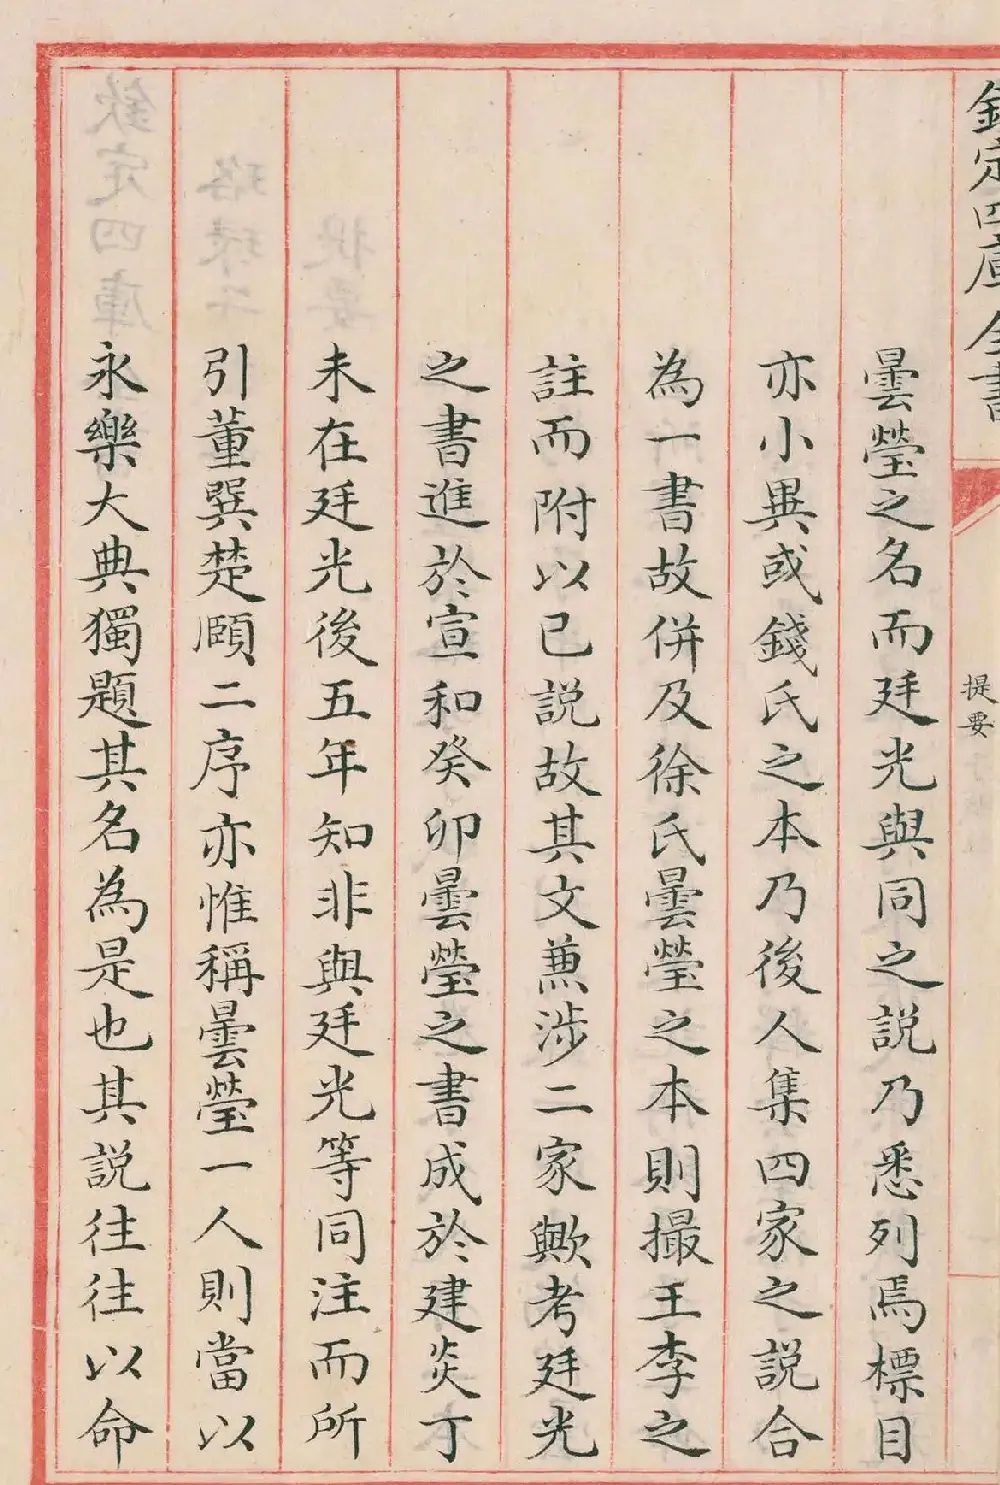 欽定四庫全書
提要
曇瑩之名而廷光與同之説乃悉列焉標目
亦小異或錢氏之本乃後人集四家之説合
為一書故併及徐氏曇瑩之本則撮王李之
註而附以已説故其文兼涉二家歟考廷光
之書進於宣和癸卯曇瑩之書成於建炎丁
未在廷光後五年知非與廷光等同注而所
引董巽楚頤二序亦惟稱曇瑩一人則當以
永樂大典獨題其名為是也其説往往以命